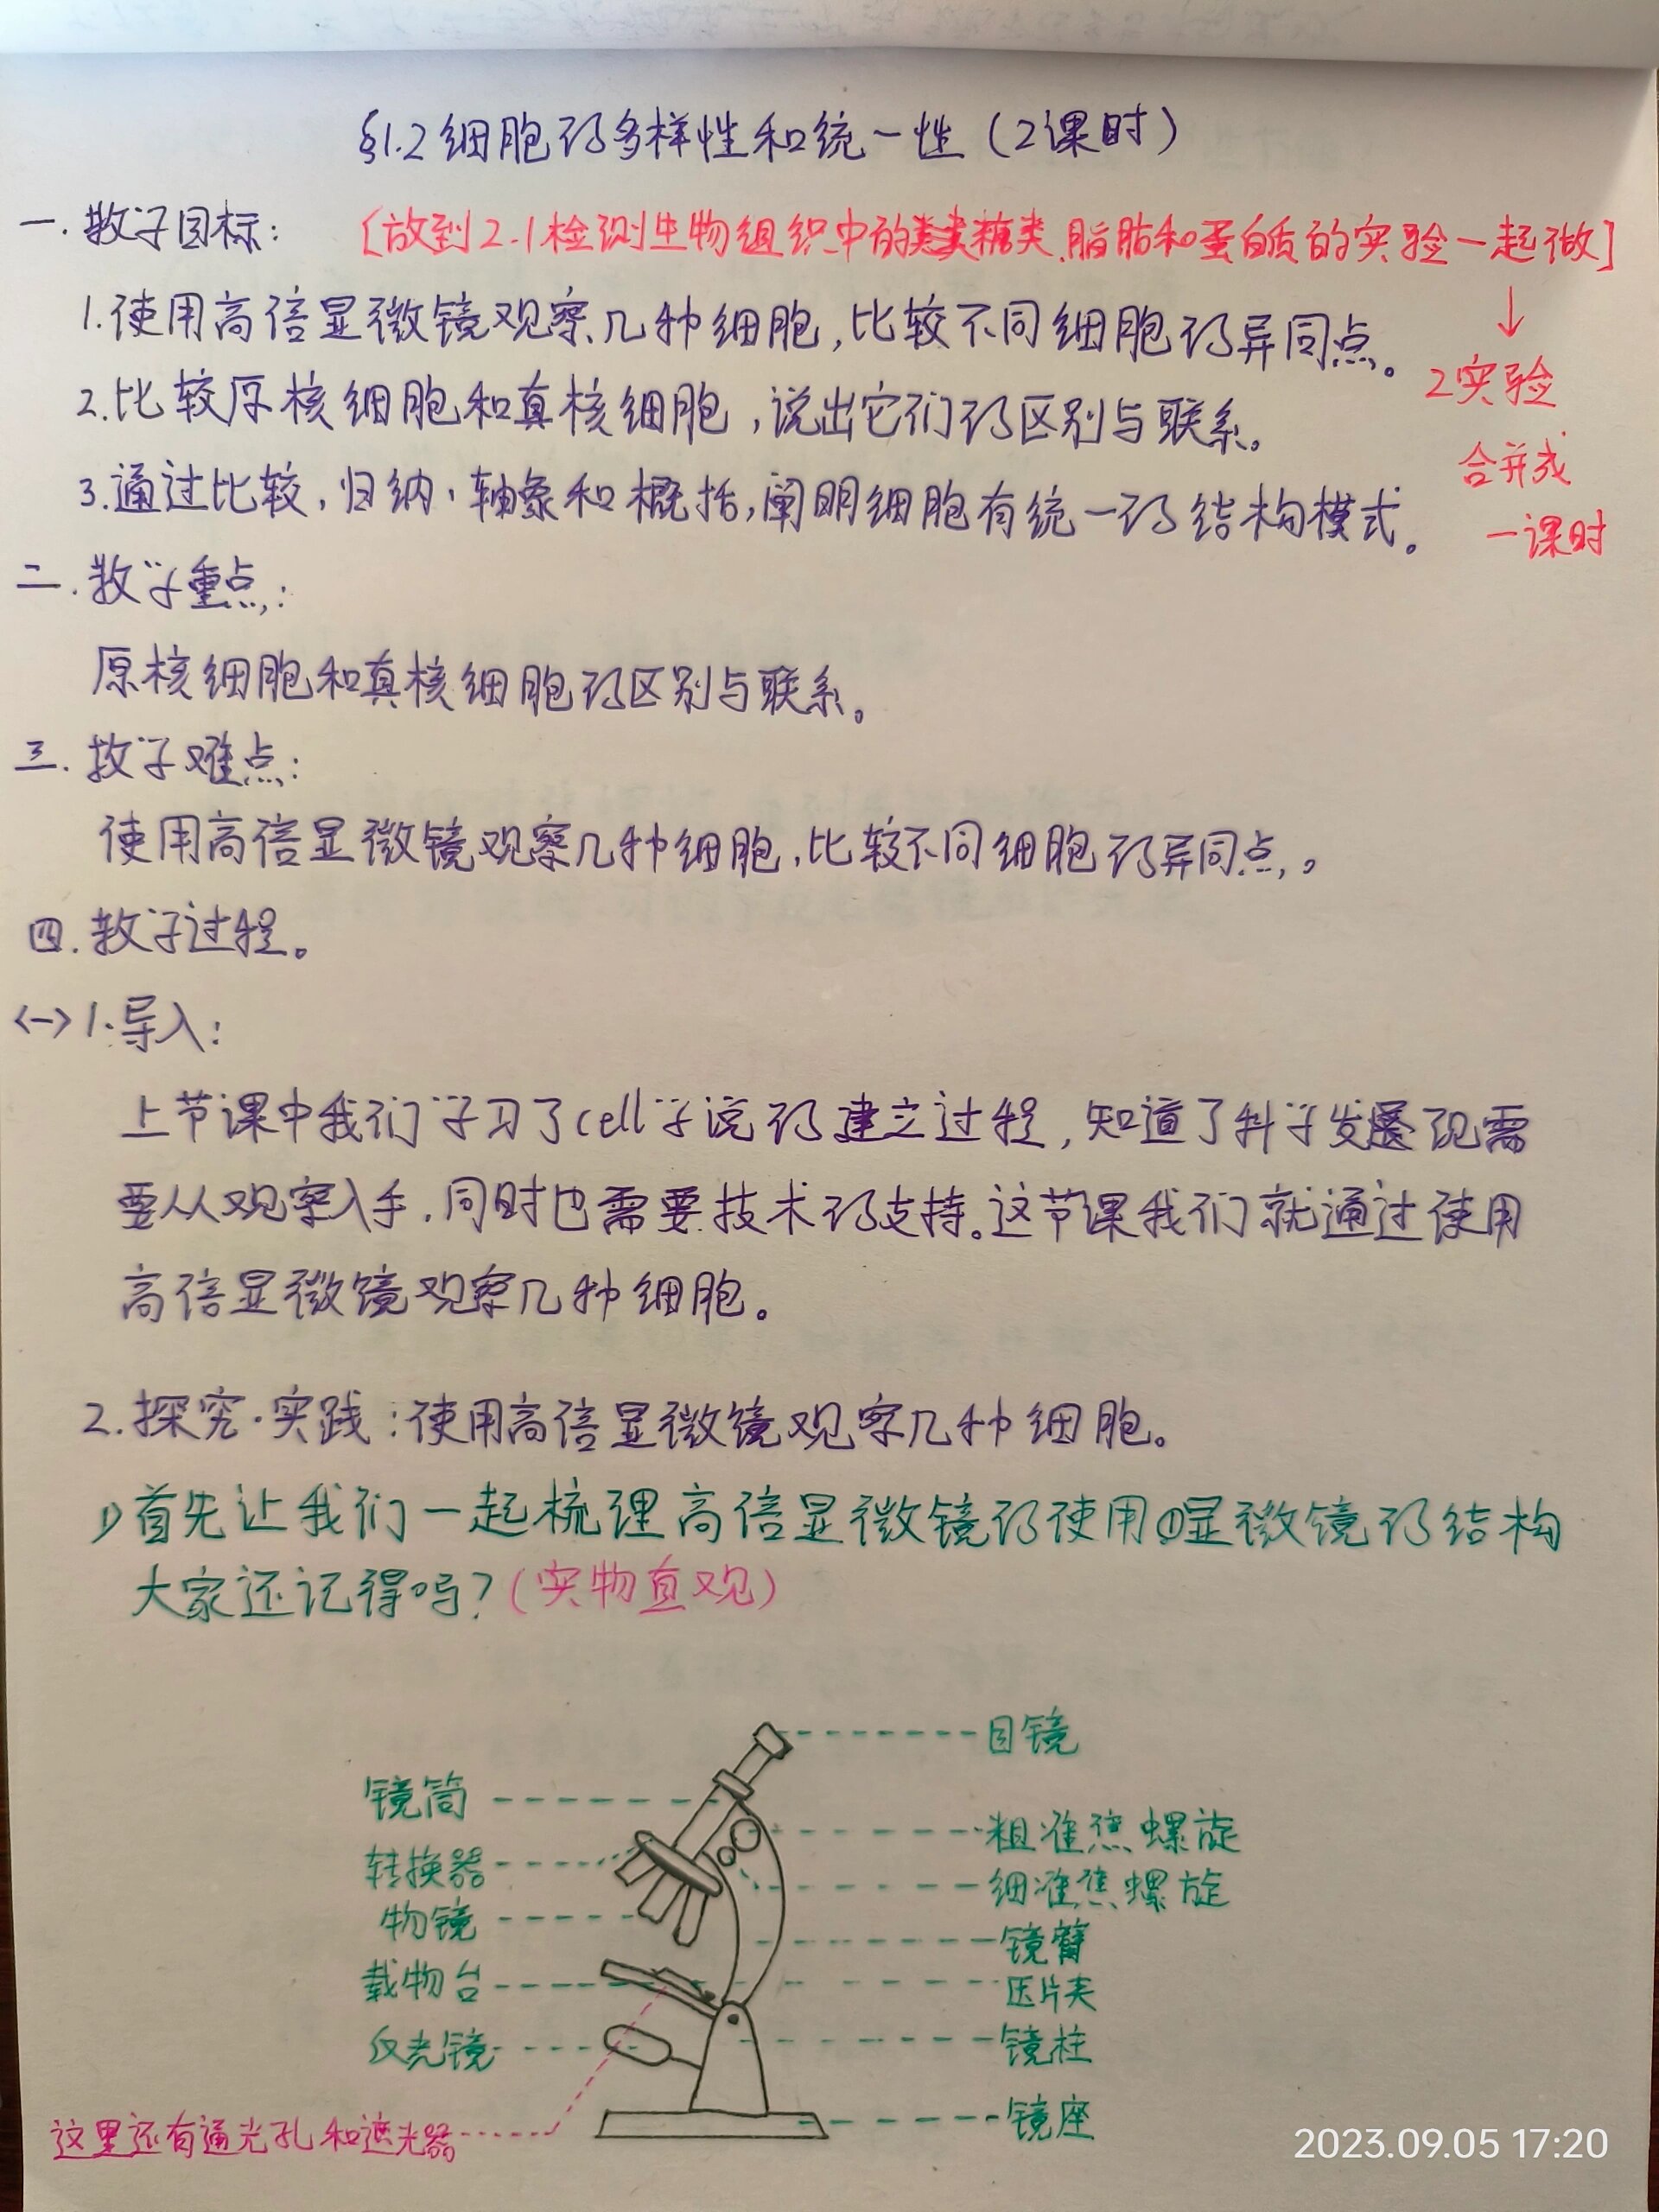 §1.2 细胞的多样性和统一性（2课时）
一. 教学目标：
［放到2.1检测生物组织中的糖类、脂肪和蛋白质的实验一起做］
↓
2实验
合并成
一课时
1.使用高倍显微镜观察几种细胞，比较不同细胞的异同点。
2.比较原核细胞和真核细胞，说出它们的区别与联系。
3.通过比较，归纳、轴象和概括，阐明细胞有统一的结构模式。
二. 教学重点：
原核细胞和真核细胞的区别与联系。
三. 教学难点：
使用高倍显微镜观察几种细胞，比较不同细胞的异同点。
四. 教学过程。
<一> 1.导入：
上节课中我们学习了cell学说的建立过程，知道了科学发现需
要从观察入手，同时也需要技术的支持。这节课我们就通过使用
高倍显微镜观察几种细胞。
2.探究·实践：使用高倍显微镜观察几种细胞。
1)首先让我们一起梳理高倍显微镜的使用①显微镜的结构
大家还记得吗？（实物直观）
目镜
镜筒
粗准焦螺旋
转换器
细准焦螺旋
物镜
镜臂
载物台
压片夹
反光镜
镜柱
镜座
这里还有通光孔和遮光器
2023.09.05 17:20